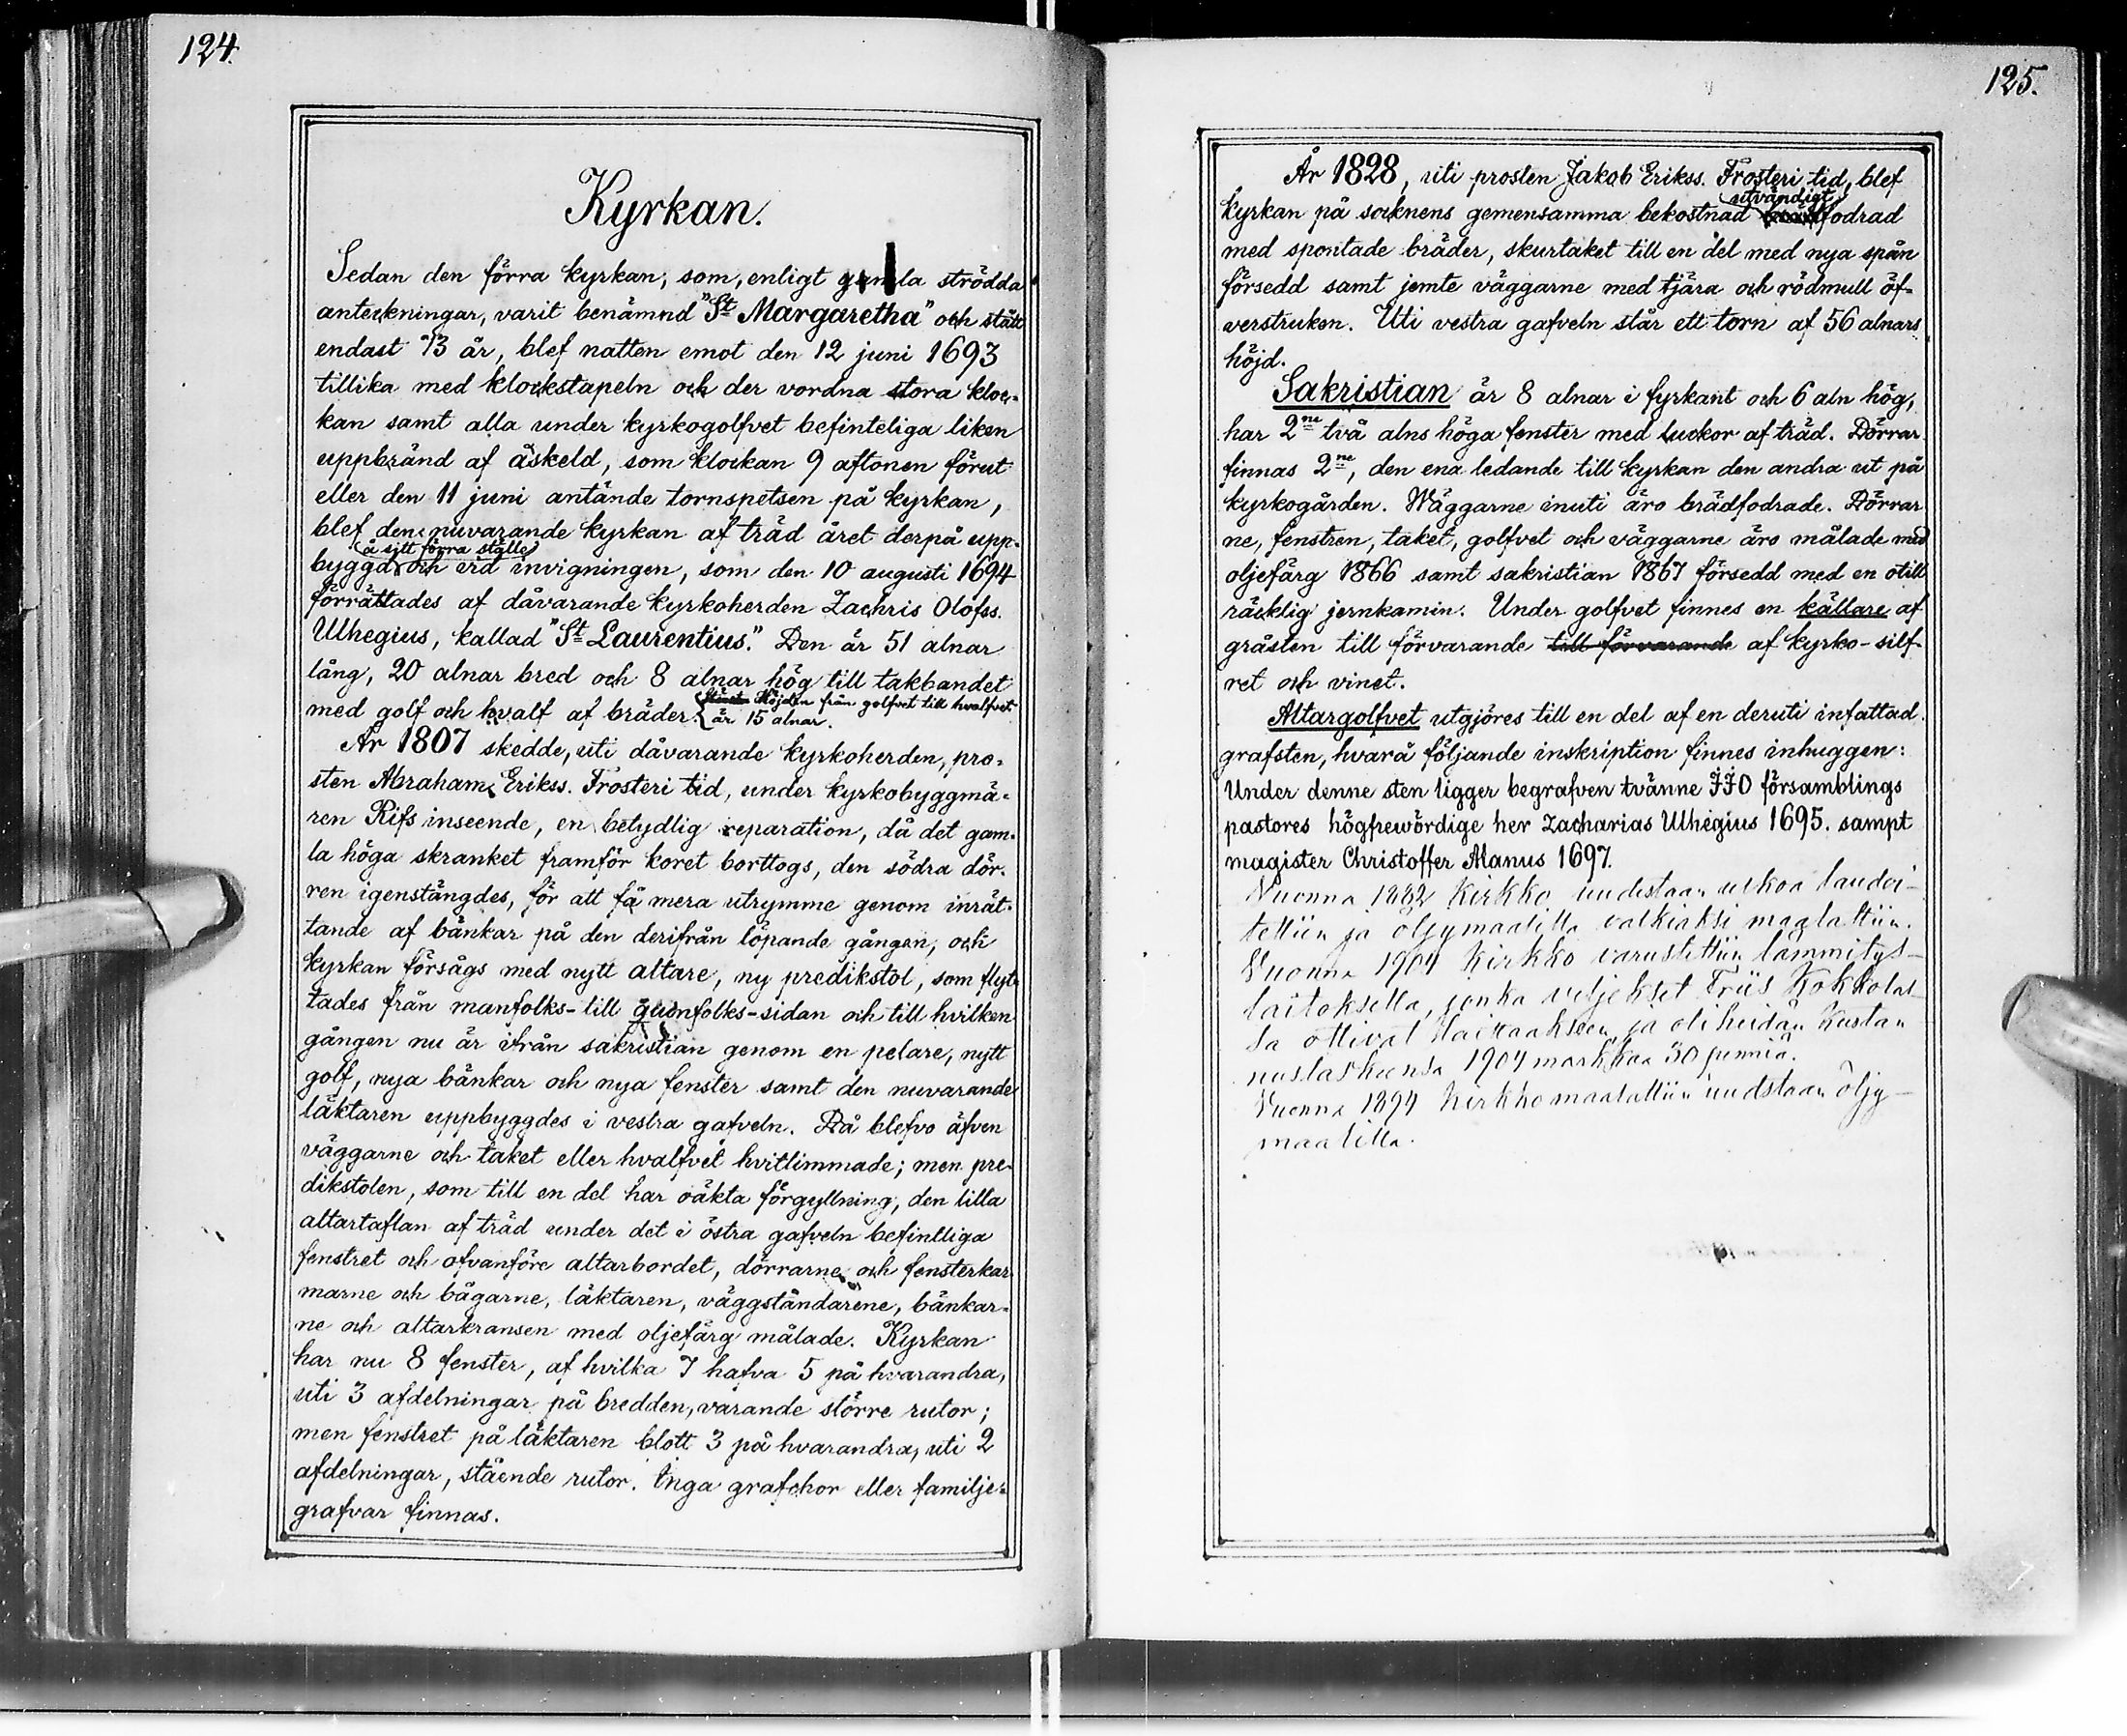 124.
Kyrkan.
Sedan den förra kyrkan, som, enligt gamla strödda
anteckningar, varit benämnd "St Margaretha" och stått
endast 73 år, blef natten emot den 12 juni 1693
tillika med klockstapeln och der vordna stora kloc-
kan samt alla under kyrkogolfvet befinteliga liken
uppbränd af åskeld, som klockan 9 aftonen förut
eller den 11 juni antände tornspetsen på kyrkan,
blef den nuvarande kyrkan af träd året derpå upp-
å sitt förra ställe
byggd och vid invigningen, som den 10 augusti 1694
förrättades af dåvarande kyrkoherden Zachris Olofss.
Ulhegius, kallad "St Laurentius." Den är 51 alnar
lång, 20 alnar bred och 8 alnar hög till takbandet
med golf och hvalf af bräder. Höjden från golfvet till hvalfvet
är 15 alnar.
År 1807 skedde, uti dåvarande kyrkoherden, pro-
sten Abraham Erikss. Frosteri tid, under kyrkobyggmä-
ren Rifs inseende, en betydlig reparation, då det gam-
la höga skranket framför koret borttogs, den södra dör-
ren igenstängdes, för att få mera utrymme genom inrät-
tande af bänkar på den derifrån löpande gången, och
kyrkan försågs med nytt altare, ny predikstol, som flyt-
tades från manfolks- till qvinfolks-sidan och till hvilken
gången nu är ifrån sakristian genom en pelare, nytt
golf, nya bänkar och nya fenster samt den nuvarande
läktaren uppbyggdes i vestra gafveln. Då blefvo äfven
väggarne och taket eller hvalfvet hvitlimmade; men pre-
dikstolen, som till en del har oäkta förgyllning, den lilla
altartaflan af träd under det i östra gafveln befintliga
fenstret och ofvanföre altarbordet, dörrarne och fensterkar-
marne och bågarne, läktaren, väggständarene, bänkar-
ne och altarkransen med oljefärg målade. Kyrkan
har nu 8 fenster, af hvilka 7 hafva 5 på hvarandra,
uti 3 afdelningar på bredden, varande större rutor;
men fenstret på läktaren blott 3 på hvarandra, uti 2
afdelningar, stående rutor. Inga grafchor eller familje-
grafvar finnas.
125.
År 1828, uti prosten Jakob Erikss. Frosteri tid, blef
utvändigt
kyrkan på socknens gemensamma bekostnad fodrad
med spontade bräder, skurtaket till en del med nya spån
försedd samt jemte väggarne med tjära och rödmull öf-
verstruken. Uti vestra gafveln står ett torn af 56 alnars
höjd.
Sakristian är 8 alnar i fyrkant och 6 aln hög,
har 2ne två alns höga fenster med luckor af träd. Dörrar
finnas 2ne, den ena ledande till kyrkan den andra ut på
kyrkogården. Wäggarne inuti äro brädfodrade. Dörrar
ne, fenstren, taket, golfvet och väggarne äro målade med
oljefärg 1866 samt sakristian 1867 försedd med en otill
räcklig jernkamin. Under golfvet finnes en källare af
gråsten till förvarande till förvarande af kyrko-silf-
ret och vinet.
Altargolfvet utgjöres till en del af en deruti infattad
grafsten, hvarå följande inskription finnes inhuggen:
Under denne sten ligger begrafven tvänne IIO församblings
pastores högfrewördige her Zacharias Ulhegius 1695. sampt
magister Christoffer Alanus 1697.
Vuonna 1882 kirkko uudestaan ulkoa laudoi-
tettiin ja öljymaalilla valkiaksi maalattiin.
Vuonna 1904 kirkko varustettiin lämmitys-
laitoksella, jonka veljekset Friis Kokkolas-
sa ottivat ja oli heidän kustan
nuslaskunsa 1904 markkaa 30 penniä.
Vuonna 1894 kirkko maalattiin uudstaan öljy-
maalilla.